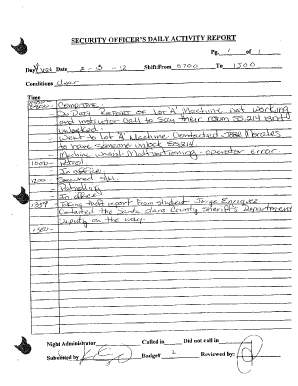 SECURITY OFFICER'S DAILY ACTIVITY REPORT
Pg. 1 of 1
Day Date 2-15-12 Shift:From 0700 To 1500
Conditions clear
Time
Report of Lot "A" Machine not working
and instructor call to say their room SS.214 isn't
unlocked.
Went to Lot "A" Machine Contacted Morales
to have someone unlock SS.214
Machine wasn't Malfunctioning, operator error
1000- Patrol
In office.
1200-
Patrolling
In office
Taking theft report from student Jorge
Contacted the Santa Clara County Sheriff's Department
Deputy on the way.
1500-
Night Administrator Called in Did not call in
Submitted by Badge# 2 Reviewed by: